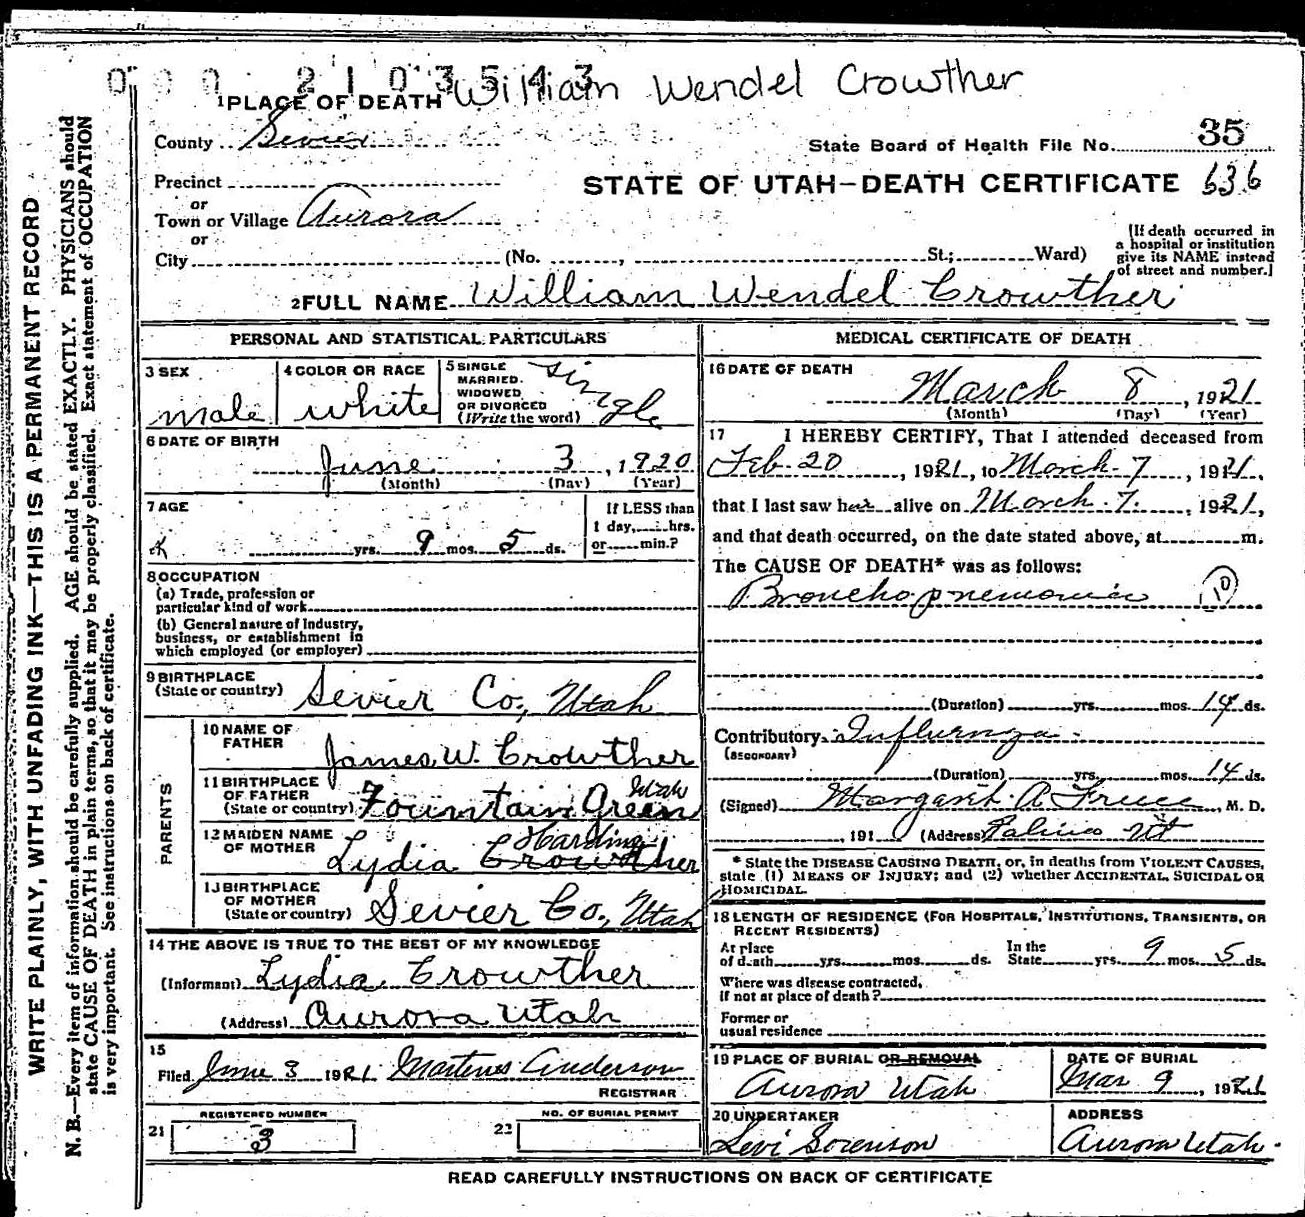 0 0 0 2 1 0 3 5 4 3 William Wendel Crowther
1 PLACE OF DEATH
County Sevier
State Board of Health File No. 35
Precinct
STATE OF UTAH—DEATH CERTIFICATE 636
or
Town or Village Aurora
or
City (No. , St.; Ward)
(If death occurred in
a hospital or institution
give its NAME instead
of street and number.)
2 FULL NAME William Wendel Crowther
PERSONAL AND STATISTICAL PARTICULARS
3 SEX
male
4 COLOR OR RACE
white
5 SINGLE
MARRIED.
WIDOWED
OR DIVORCED
(Write the word)
single
6 DATE OF BIRTH
June 3, 1920
(Month) (Day) (Year)
7 AGE
yrs. 9 mos. 5 ds.
If LESS than
1 day, hrs.
or min.?
8 OCCUPATION
(a) Trade, profession or
particular kind of work
(b) General nature of Industry,
business, or establishment in
which employed (or employer)
9 BIRTHPLACE
(State or country) Sevier Co., Utah
PARENTS
10 NAME OF
FATHER
James W. Crowther
11 BIRTHPLACE
OF FATHER
(State or country) Fountain Green Utah
12 MAIDEN NAME
OF MOTHER
Lydia Crowther Harding
13 BIRTHPLACE
OF MOTHER
(State or country) Sevier Co., Utah
14 THE ABOVE IS TRUE TO THE BEST OF MY KNOWLEDGE
(Informant) Lydia Crowther
(Address) Aurora Utah
15
Filed June 3 1921 Martenus Anderson
REGISTRAR
REGISTERED NUMBER
21 3
NO. OF BURIAL PERMIT
22
MEDICAL CERTIFICATE OF DEATH
16 DATE OF DEATH
March 8, 1921
(Month) (Day) (Year)
17 I HEREBY CERTIFY, That I attended deceased from
Feb. 20, 1921, to March 7, 1921,
that I last saw h alive on March 7, 1921,
and that death occurred, on the date stated above, at m.
The CAUSE OF DEATH* was as follows:
Bronchopnemonia 10
(Duration) yrs. mos. 14 ds.
Contributory Influenza
(SECONDARY)
(Duration) yrs. mos. 14 ds.
(Signed) Margaret A. Freece, M. D.
, 191 (Address) Salina Ut
* State the DISEASE CAUSING DEATH, or, in deaths from VIOLENT CAUSES,
state (1) MEANS OF INJURY; and (2) whether ACCIDENTAL, SUICIDAL OR
HOMICIDAL.
18 LENGTH OF RESIDENCE (FOR HOSPITALS, INSTITUTIONS, TRANSIENTS, OR
RECENT RESIDENTS)
At place
of death yrs. mos. ds.
In the
State yrs. 9 mos. 5 ds.
Where was disease contracted,
If not at place of death?
Former or
usual residence
19 PLACE OF BURIAL OR REMOVAL
Aurora Utah
DATE OF BURIAL
Mar 9, 1921
20 UNDERTAKER
Levi Sorenson
ADDRESS
Aurora Utah.
READ CAREFULLY INSTRUCTIONS ON BACK OF CERTIFICATE
WRITE PLAINLY, WITH UNFADING INK—THIS IS A PERMANENT RECORD
N. B.—Every item of information should be carefully supplied. AGE should be stated EXACTLY. PHYSICIANS should
state CAUSE OF DEATH in plain terms, so that it may be properly classified. Exact statement of OCCUPATION
is very important. See instructions on back of certificate.